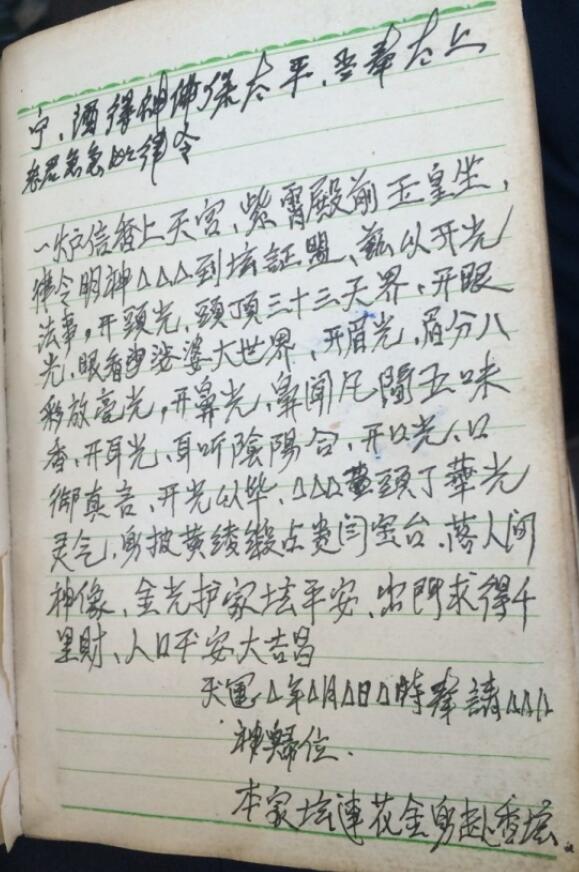 宁、酒得神佛保太平、当奉太上
老君急急如律令
一炉信香上天宫、紫霄殿前玉皇坐,
律令明神△△△到坛証盟、兹以开光
法事,开頭光、頭頂三十三天界、开眼
光、眼看娑婆大世界、开眉光、眉分八
彩放毫光,开鼻光、鼻闻凡間五味
香、开耳光、耳听陰陽合、开口光、口
御真言、开光以毕、△△△頭丁華光
灵气,身披黄绫缎占贵闫宝台、落人间
神像、金光护家坛平安、出門求得千
里財、人口平安大吉昌
天運△年△月△日△時奉請△△△
神歸位.
本家坛連花金身赴香坛。